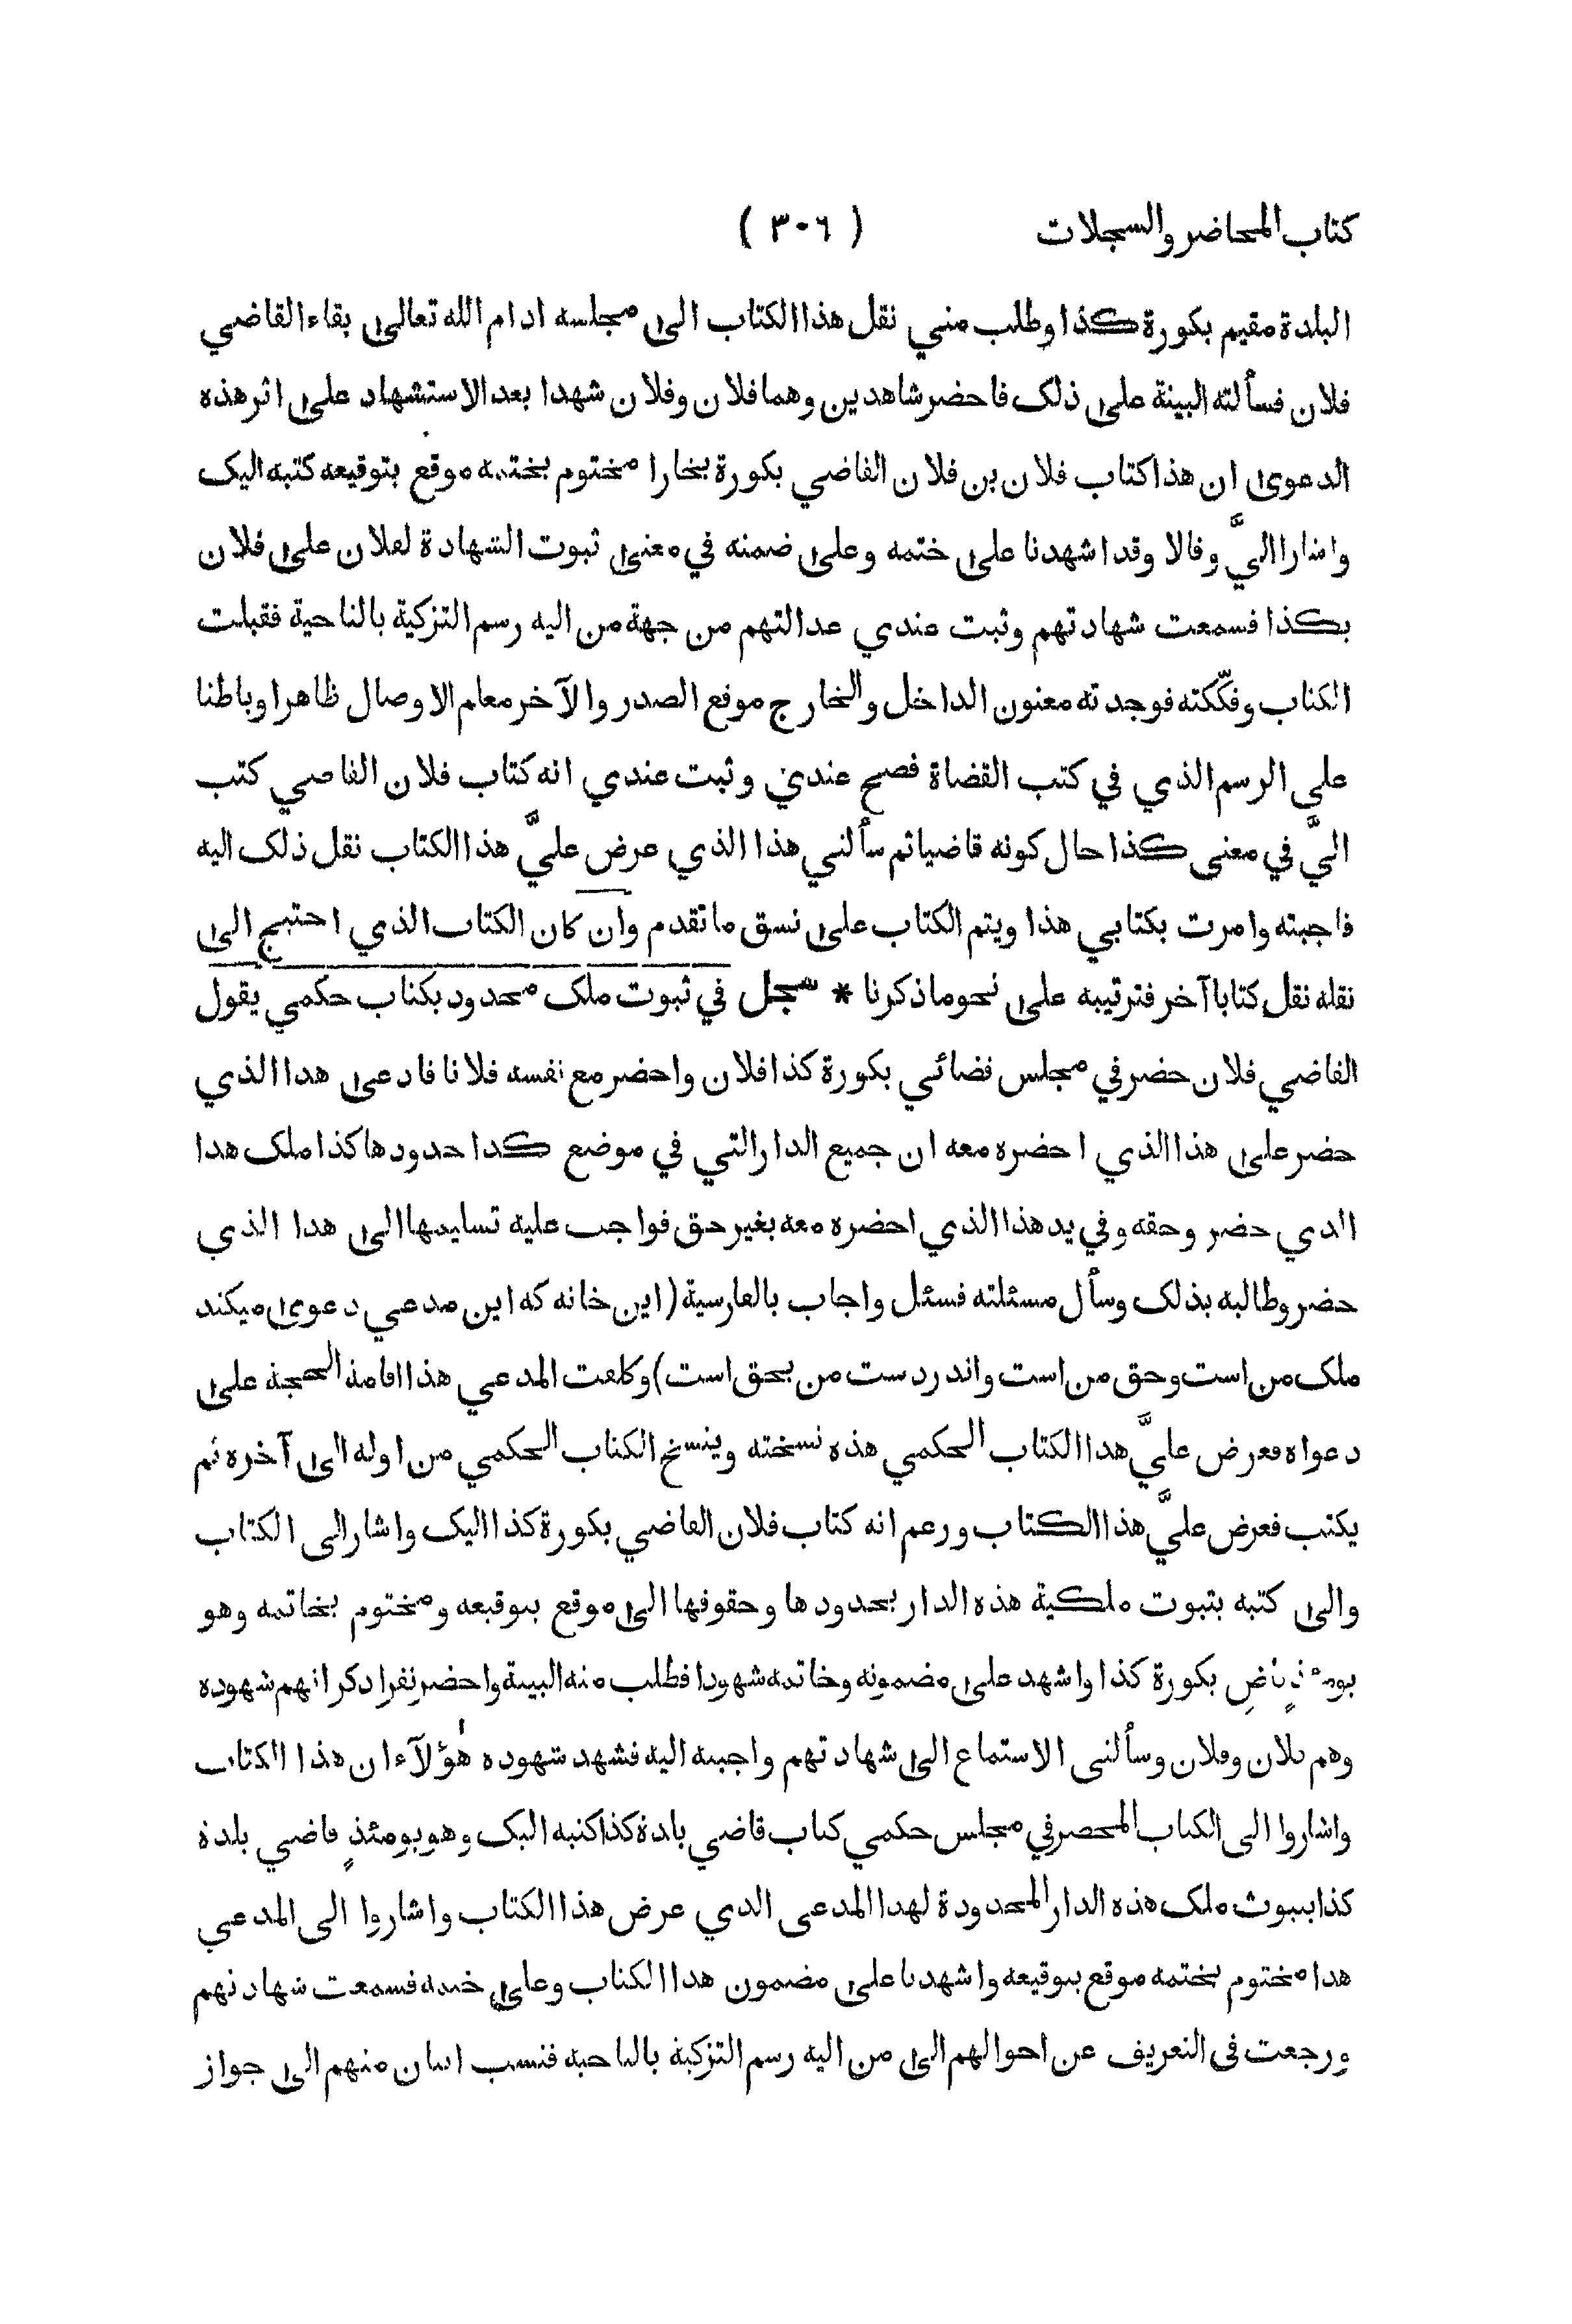 كتاب المحاضر والسجلات ( ٣٠٦ )
البلدة مقيم بكورة كذا وطلب مني نقل هذا الكتاب الى مجلسه ادام الله تعالى بقاء القاضي
فلان فسألته البينة على ذلك فاحضر شاهدين وهما فلان وفلان شهدا بعد الاستشهاد على اثر هذه
الدعوى ان هذا كتاب فلان بن فلان القاضي بكورة بخارا مختوم بختمه موقع بتوقيعه كتبه اليك
واشارا اليَّ وقالا وقد اشهدنا على ختمه وعلى ضمنه في معنى ثبوت الشهادة لفلان على فلان
بكذا فسمعت شهادتهم وثبت عندي عدالتهم من جهة من اليه رسم التزكية بالناحية فقبلت
الكتاب وفكّكته فوجدته معنون الداخل والخارج موقع الصدر والآخر معلم الاوصال ظاهرا وباطنا
على الرسم الذي في كتب القضاة فصح عندي وثبت عندي انه كتاب فلان القاضي كتب
اليَّ في معنى كذا حال كونه قاضيا ثم سألني هذا الذي عرض عليَّ هذا الكتاب نقل ذلك اليه
فاجبته وامرت بكتابي هذا ويتم الكتاب على نسق ما تقدم وان كان الكتاب الذي احتيج الى
نقله نقل كتابا آخر فترتيبه على نحو ما ذكرنا * سجل في ثبوت ملك محدود بكتاب حكمي يقول
القاضي فلان حضر في مجلس قضائي بكورة كذا فلان واحضر مع نفسه فلانا فادعى هذا الذي
حضر على هذا الذي احضره معه ان جميع الدار التي في موضع كذا حدودها كذا ملك هذا
الذي حضر وحقه وفي يد هذا الذي احضره معه بغير حق فواجب عليه تسليمها الى هذا الذي
حضر وطالبه بذلك وسأل مسئلته فسئل واجاب بالفارسية (اين خانه كه اين مدعي دعوى ميكند
ملك من است وحق من است واندر دست من بحق است) وكلفت المدعي هذا اقامة الحجة على
دعواه فعرض عليَّ هذا الكتاب الحكمي هذه نسخته وينسخ الكتاب الحكمي من اوله الى آخره ثم
يكتب فعرض عليَّ هذا الكتاب وزعم انه كتاب فلان القاضي بكورة كذا اليك واشار الى الكتاب
والى كتبه بثبوت ملكية هذه الدار بحدودها وحقوقها الى موقع بتوقيعه ومختوم بخاتمه وهو
يومئذٍ قاضٍ بكورة كذا واشهد على مضمونه وخاتمه شهودا فطلب منه البينة واحضر نفرا ذكر انهم شهوده
وهم فلان وفلان وسألنى الاستماع الى شهادتهم واجبته اليه فشهد شهوده هٰؤلآء ان هذا الكتاب
واشاروا الى الكتاب المحضر في مجلس حكمي كتاب قاضي بلدة كذا كتبه اليك وهو يومئذٍ قاضي بلدة
كذا بثبوت ملك هذه الدار المحدودة لهذا المدعى الذي عرض هذا الكتاب واشاروا الى المدعي
هذا مختوم بختمه موقع بتوقيعه واشهدنا على مضمون هذا الكتاب وعلى ختمه فسمعت شهادتهم
ورجعت في التعريف عن احوالهم الى من اليه رسم التزكية بالناحية فنسب اثنان منهم الى جواز